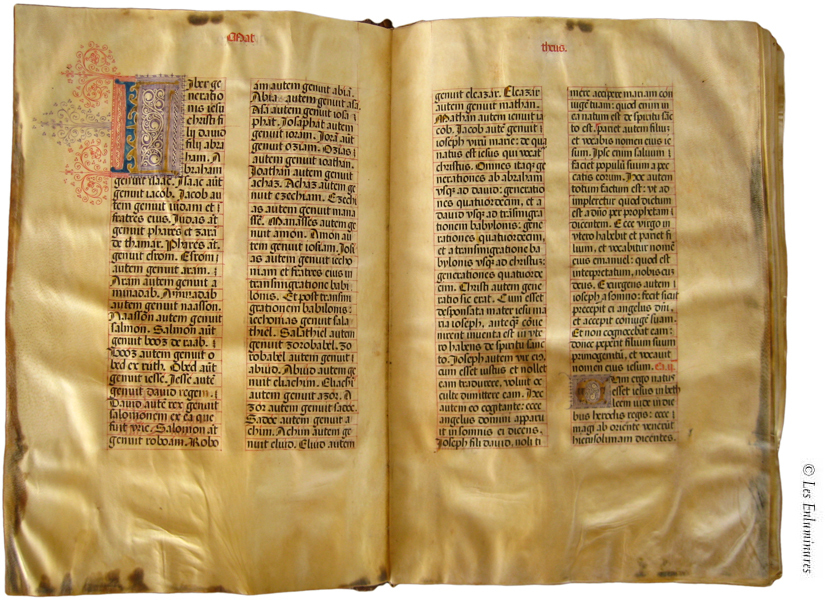 Mat
theus.
Liber ge
neratio
nis iesu
christi fi
lij dauid
filij abra
ham. A
braham
genuit isaac. Isaac aūt
genuit iacob. Iacob au
tem genuit iudam et
fratres eius. Iudas āt
genuit phares et zara
de thamar. Phares āt
genuit esrom. Esrom
autem genuit aram.
Aram autem genuit a
minadab. Aminadab
autem genuit naasson.
Naasson autem genuit
salmon. Salmon aūt
genuit booz de raab.
Booz autem genuit o
bed ex ruth. Obed aūt
genuit iesse. Iesse autē
genuit dauid regem.
Dauid autē rex genuit
salomonem ex ea que
fuit vrie. Salomon āt
genuit roboam. Robo
am autem genuit abiā.
Abia autem genuit asa.
Asa autem genuit iosa
phat. Iosaphat autem
genuit ioram. Iorā aūt
genuit oziam. Ozias
autem genuit ioathan.
Ioathan autem genuit
achaz. Achaz autem ge
nuit ezechiam. Ezechi
as autem genuit mana
sse. Manasses autem ge
nuit amon. Amon au
tem genuit iosiam. Iosi
as autem genuit iecho
niam et fratres eius in
transmigratione babi
lonis. Et post transmi
grationem babilonis:
iechonias genuit sala
thiel. Salathiel autem
genuit zorobabel. Zo
robabel autem genuit
abiud. Abiud autem ge
nuit eliachim. Eliachi
autem genuit azor. A
zor autem genuit sadoc.
Sadoc autem genuit a
chim. Achim autem ge
nuit eliud. Eliud autem
genuit eleazar. Eleazar
autem genuit mathan.
Mathan autem genuit ia
cob. Iacob autē genuit
ioseph virū marie: de qua
natus est iesus qui vocat
christus. Omnes itaqz ge
nerationes ab abraham
vsqz ad dauid: generatio
nes quatuordecim, et a
dauid vsqz ad trāsmigra
tionem babylonis: gene
rationes quatuordecim,
et a transmigratione ba
bylonis vsqz ad christū:
generationes quatuorde
cim. Christi autem gene
ratio sic erat. Cum esset
desponsata mater iesu ma
ria ioseph, anteqz cōue
nirent inuenta est in vte
ro habens de spiritu sanc
to. Ioseph autem vir eius
cum esset iustus et nollet
eam traducere, voluit oc
culte dimittere eam. Hec
autem eo cogitante: ecce
angelus domini apparu
it in somnis ei dicens.
Ioseph fili dauid, noli ti
mere accipere mariam con
iugē tuam: quod enim in
ea natum est de spiritu sāc
to est. pariet autem filiū:
et vocabis nomen eius ie
sum. Ipse enim saluum
faciet populū suum a pec
catis eorum. Hoc autem
totum factum est: vt ad
impleretur quod dictum
est a dño per prophetam
dicentem. Ecce virgo in
vtero habebit et pariet fi
lium, et vocabitur nomē
eius emanuel: quod est
interpretatum, nobiscum
deus. Exurgens autem
ioseph a somno: fecit sicut
precepit ei angelus dñi,
et accepit coniugē suam.
Et non cognoscebat eam:
donec peperit filium suum
primogenitū, et vocauit
nomen eius iesum. Ca. ij.
Cum ergo natus
esset iesus in beth
leem iude in die
bus herodis regis: ecce
magi ab oriente venerūt
hierosolimam dicentes.
© Les Enluminures